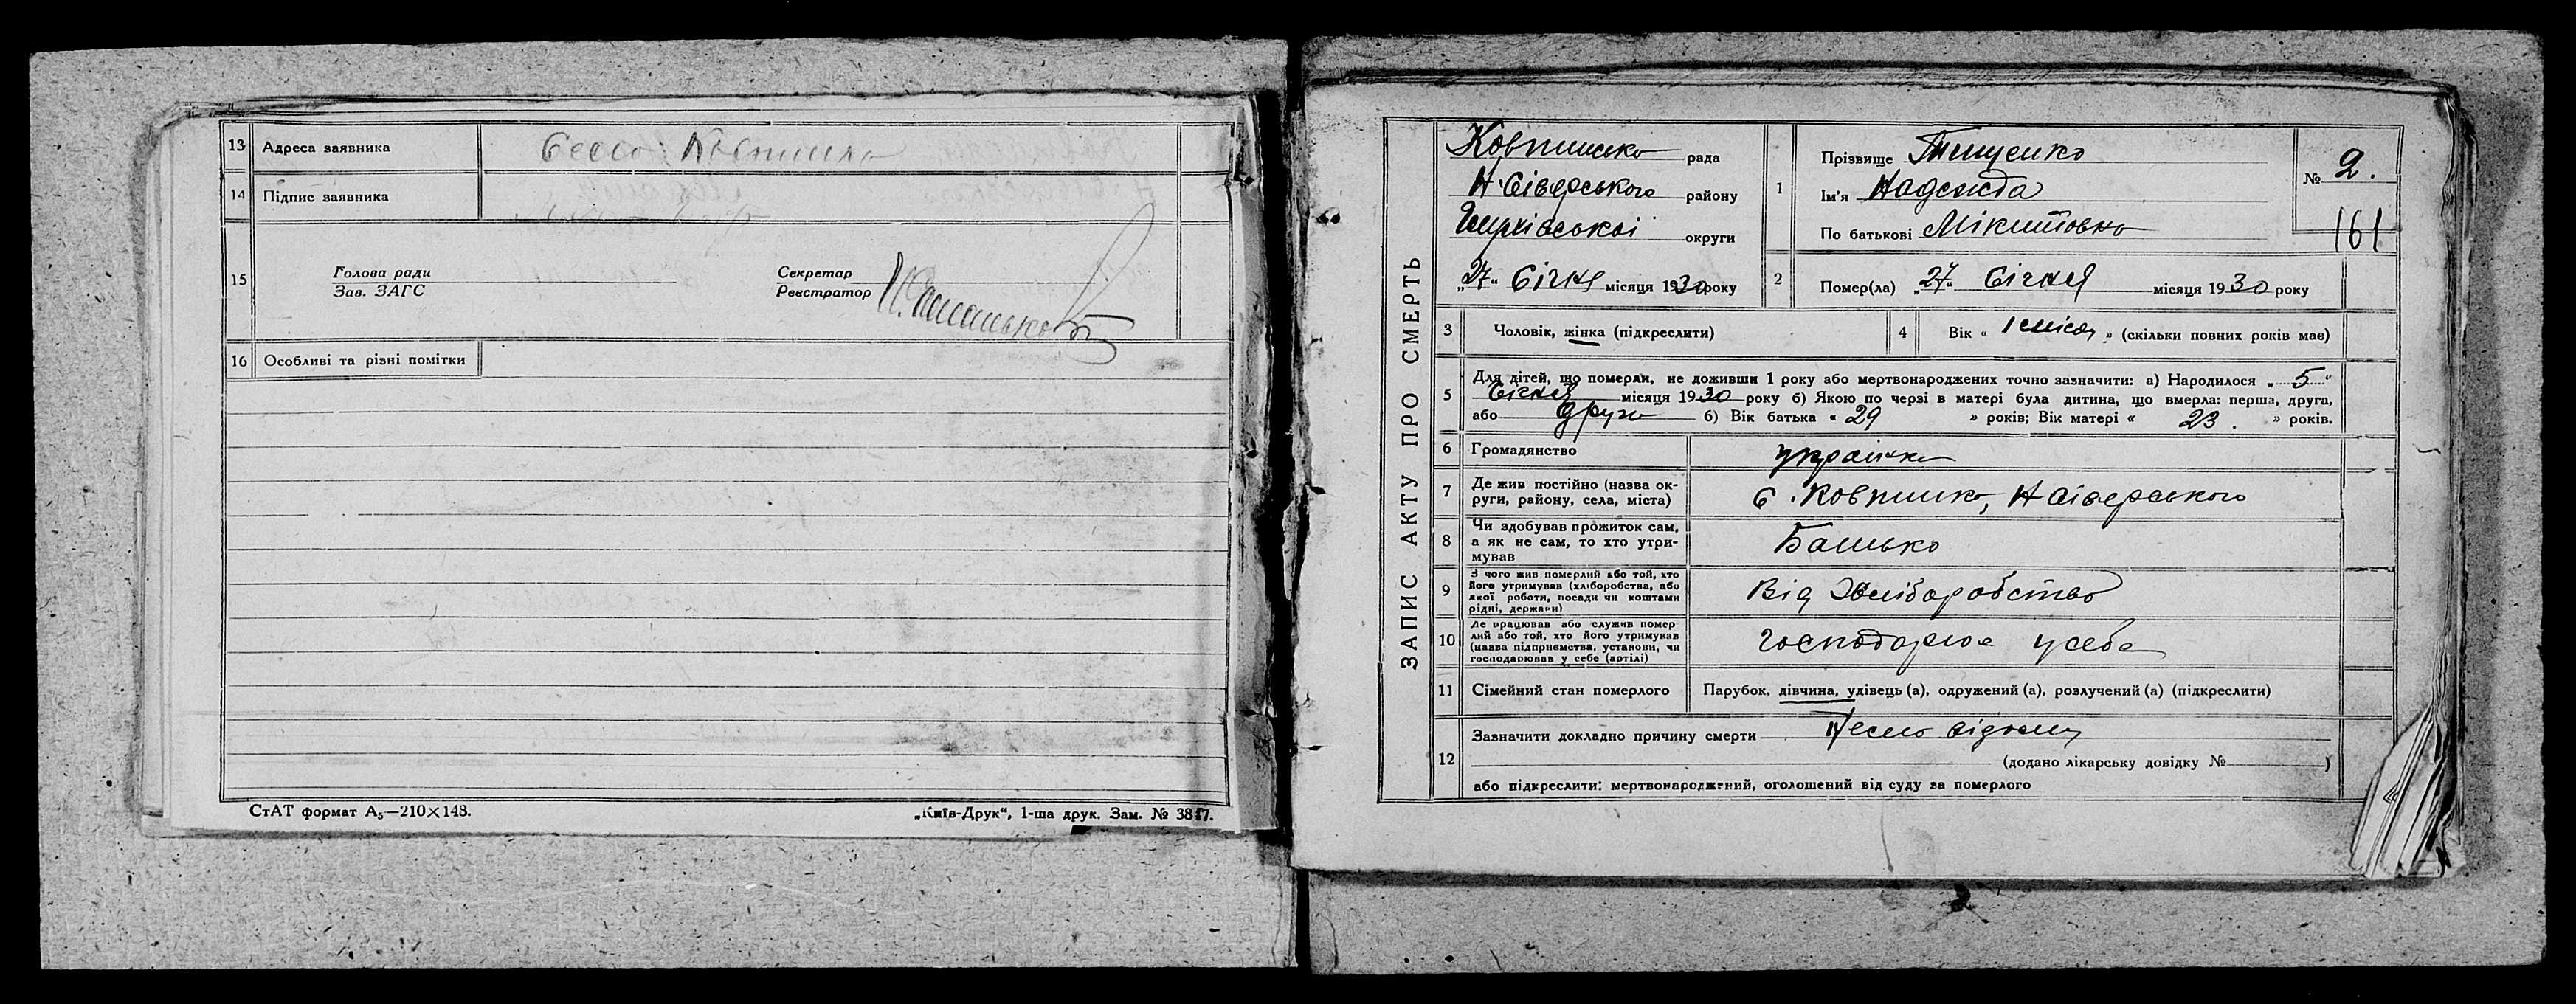 13 Адреса заявника Село Ковпинка
14 Підпис заявника
15 Голова ради
Зав. ЗАГС
Секретар
Реєстратор
16 Особливі та різні помітки
СтАТ формат А₅—210×148.
„Київ-Друк“, 1-ша друк. Зам. № 3847.
ЗАПИС АКТУ ПРО СМЕРТЬ
Ковпинська рада
Н-Сіверського району
округи
„27“ Січня місяця 1930 року
1 Прізвище Тищенко
Ім'я Надежда
По батькові Мікитовна
№ 2.
161
2 Помер(ла) „27“ Січня місяця 1930 року
3 Чоловік, жінка (підкреслити)
4 Вік « 1 місяц » (скільки повних років має)
5 Для дітей, що померли, не доживши 1 року або мертвонароджених точно зазначити: а) Народилося „ 5 “
Січня місяця 1930 року б) Якою по черзі в матері була дитина, що вмерла: перша, друга,
або друга б) Вік батька « 29 » років; Вік матері « 23. » років.
6 Громадянство українка
7 Де жив постійно (назва ок-
руги, району, села, міста) с. Ковпинка, Н Сіверського
8 Чи здобував прожиток сам,
а як не сам, то хто утри-
мував Батько
9 З чого жив померлий або той, хто
його утримував (хліборобства, або
якої роботи, посади чи коштами
рідні, держави) Від Хліборобства
10 Де працював або служив помер-
лий або той, хто його утримував
(назва підприємства, установи, чи
господарював у себе (артілі) господарює у себе
11 Сімейний стан померлого Парубок, дівчина, удівець (а), одружений (а), розлучений (а) (підкреслити)
12 Зазначити докладно причину смерти
(додано лікарську довідку № )
або підкреслити: мертвонароджений, оголошений від суду за померлого